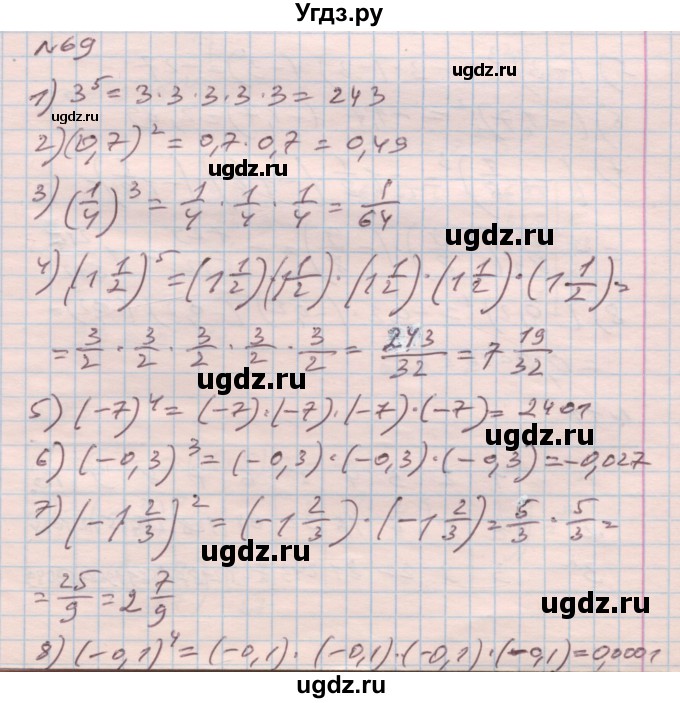 Угдз.ру
№69
ugdz.ru
1) 3⁵ = 3 · 3 · 3 · 3 · 3 = 243
ugdz.ru
2) (0,7)² = 0,7 · 0,7 = 0,49
ugdz.ru
3) (1/4)³ = 1/4 · 1/4 · 1/4 = 1/64
ugdz.ru
4) (1 1/2)⁵ = (1 1/2)(1 1/2) · (1 1/2) · (1 1/2) · (1 1/2) =
= 3/2 · 3/2 · 3/2 · 3/2 · 3/2 = 243/32 = 7 19/32
ugdz.ru
5) (-7)⁴ = (-7) · (-7) · (-7) · (-7) = 2401
ugdz.ru
6) (-0,3)³ = (-0,3) · (-0,3) · (-0,3) = -0,027
7) (-1 2/3)² = (-1 2/3) · (-1 2/3) = 5/3 · 5/3 =
ugdz.ru
= 25/9 = 2 7/9
ugdz.ru
8) (-0,1)⁴ = (-0,1) · (-0,1) · (-0,1) · (-0,1) = 0,0001
ugdz.ru
ugdz.ru